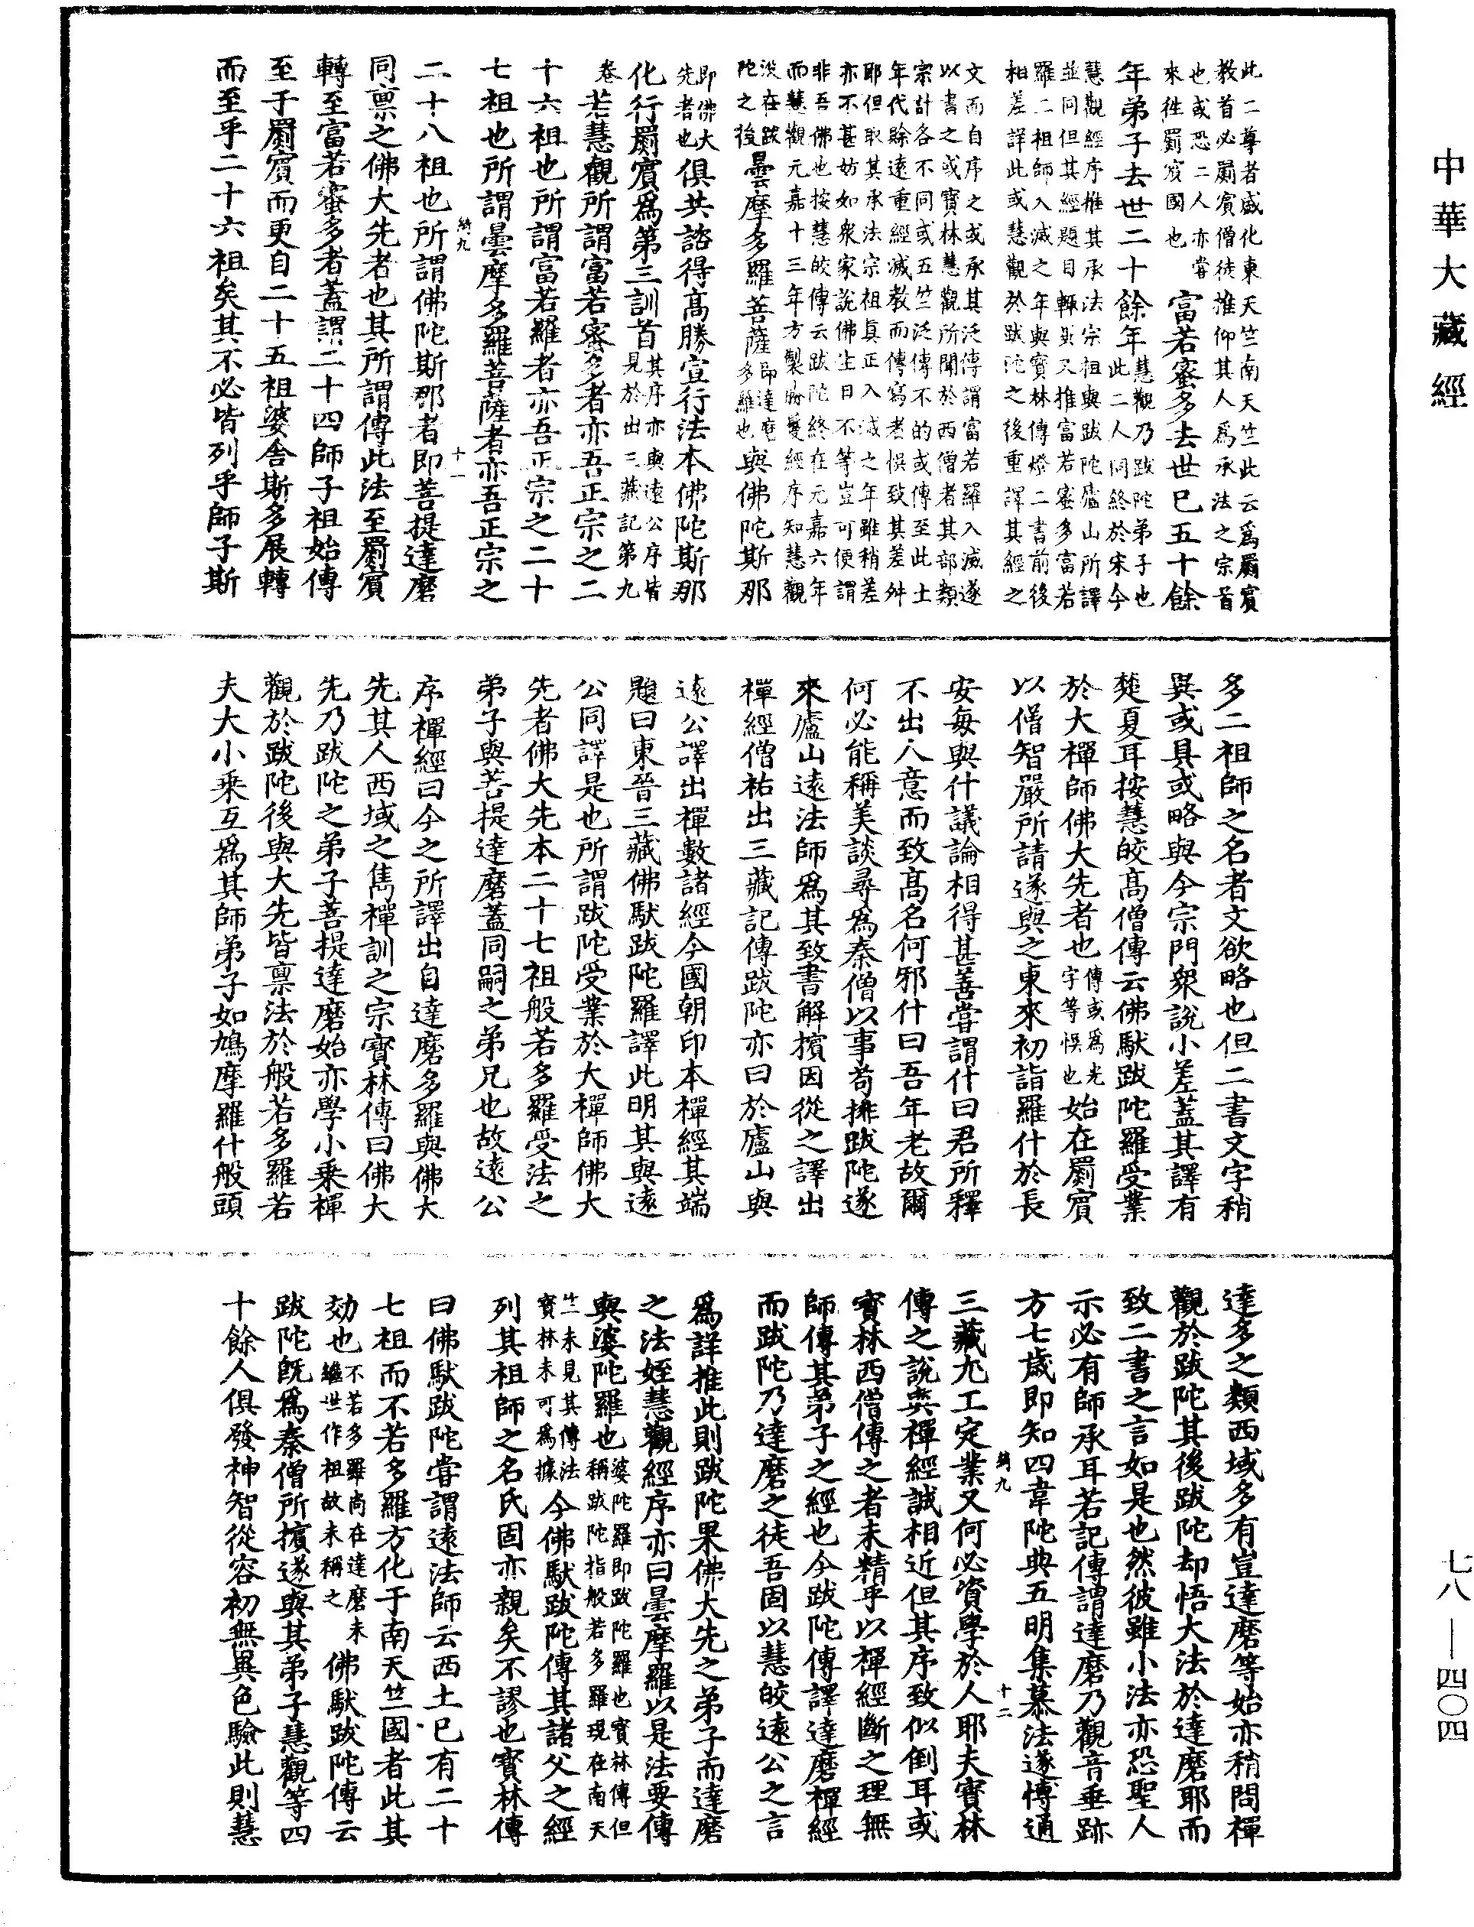 中華大藏經
此二尊者盛化東天竺南天竺此云爲罽賓
教首必罽賓僧徒推仰其人爲承法之宗首
也或恐二人亦嘗
來往罽賓國也
富若蜜多去世已五十餘
年弟子去世二十餘年
慧觀乃跋陀弟子也
此二人同終於宋今
慧觀經序推其承法宗祖與跋陀廬山所譯
並同但其經題目輙異又推富若蜜多富若
羅二祖師入滅之年與寶林傳燈二書前後
相差詳此或慧觀於跋陀之後重譯其經之
文而自序之或承其泛傳謂富若羅入滅遂
以書之或寶林慧觀所聞於西僧者其部類
宗計各不同或五竺泛傳不的或傳至此土
年代賒遠重經滅教而傳寫者悞致其差舛
耶但取其承法宗祖真正入滅之年雖稍差
亦不甚妨如衆家說佛生日不等豈可便謂
非吾佛也按慧皎傳云跋陀終在元嘉六年
而慧觀元嘉十三年方製勝鬘經序知慧觀
沒在跋
陀之後
曇摩多羅菩薩
即達磨
多羅也
與佛陀斯那
即佛大
先者也
俱共諮得高勝宣行法本佛陀斯那
化行罽賓爲第三訓首
其序亦與遠公序皆
見於出三藏記第九
卷
若慧觀所謂富若蜜多者亦吾正宗之二
十六祖也所謂富若羅者亦吾正宗之二十
七祖也所謂曇摩多羅菩薩者亦吾正宗之
綺九 十一
二十八祖也所謂佛陀斯那者即菩提達磨
同禀之佛大先者也其所謂傳此法至罽賓
轉至富若蜜多者蓋謂二十四師子祖始傳
至于罽賓而更自二十五祖婆舍斯多展轉
而至乎二十六祖矣其不必皆列乎師子斯
多二祖師之名者文欲略也但二書文字稍
異或具或略與今宗門衆說小差蓋其譯有
楚夏耳按慧皎高僧傳云佛馱跋陀羅受業
於大禪師佛大先者也
傳或爲光
字等悞也
始在罽賓
以僧智嚴所請遂與之東來初詣羅什於長
安每與什議論相得甚善嘗謂什曰君所釋
不出人意而致高名何邪什曰吾年老故爾
何必能稱美談尋爲秦僧以事苟擯跋陀遂
來廬山遠法師爲其致書解擯因從之譯出
禪經僧祐出三藏記傳跋陀亦曰於廬山與
遠公譯出禪數諸經今國朝印本禪經其端
題曰東晉三藏佛馱跋陀羅譯此明其與遠
公同譯是也所謂跋陀受業於大禪師佛大
先者佛大先本二十七祖般若多羅受法之
弟子與菩提達磨蓋同嗣之弟兄也故遠公
序禪經曰今之所譯出自達磨多羅與佛大
先其人西域之雋禪訓之宗寶林傳曰佛大
先乃跋陀之弟子菩提達磨始亦學小乘禪
觀於跋陀後與大先皆禀法於般若多羅若
夫大小乘互爲其師弟子如鳩摩羅什般頭
達多之類西域多有豈達磨等始亦稍問禪
觀於跋陀其後跋陀却悟大法於達磨耶而
致二書之言如是也然彼雖小法亦恐聖人
示必有師承耳若記傳謂達磨乃觀音垂跡
方七歲即知四韋陀典五明集慕法遂博通
綺九 十二
三藏尤工定業又何必資學於人耶夫寶林
傳之說與禪經誠相近但其序致似倒耳或
寶林西僧傳之者未精乎以禪經斷之理無
師傳其弟子之經也今跋陀傳譯達磨禪經
而跋陀乃達磨之徒吾固以慧皎遠公之言
爲詳推此則跋陀果佛大先之弟子而達磨
之法姪慧觀經序亦曰曇摩羅以是法要傳
與婆陀羅也
婆陀羅即跋陀羅也寶林傳但
稱跋陀指般若多羅現在南天
竺未見其傳法
寶林未可爲據
今佛馱跋陀傳其諸父之經
列其祖師之名氏固亦親矣不謬也寶林傳
曰佛馱跋陀嘗謂遠法師云西土已有二十
七祖而不若多羅方化于南天竺國者此其
効也
不若多羅尚在達磨未
繼世作祖故未稱之
佛馱跋陀傳云
跋陀旣爲秦僧所擯遂與其弟子慧觀等四
十餘人俱發神智從容初無異色驗此則慧
七八—四〇四